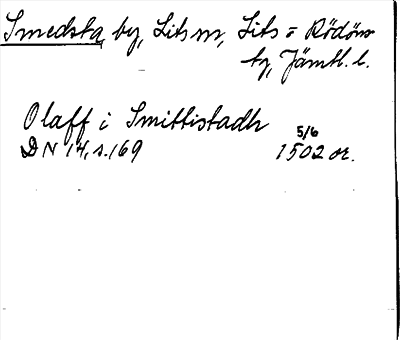 Smedsta, by, Lits sn, Lits o Rödöns
tg, Jämtl. l.
Olaff i Smittistadh
DN 14, s. 169 5/6 1502 or.